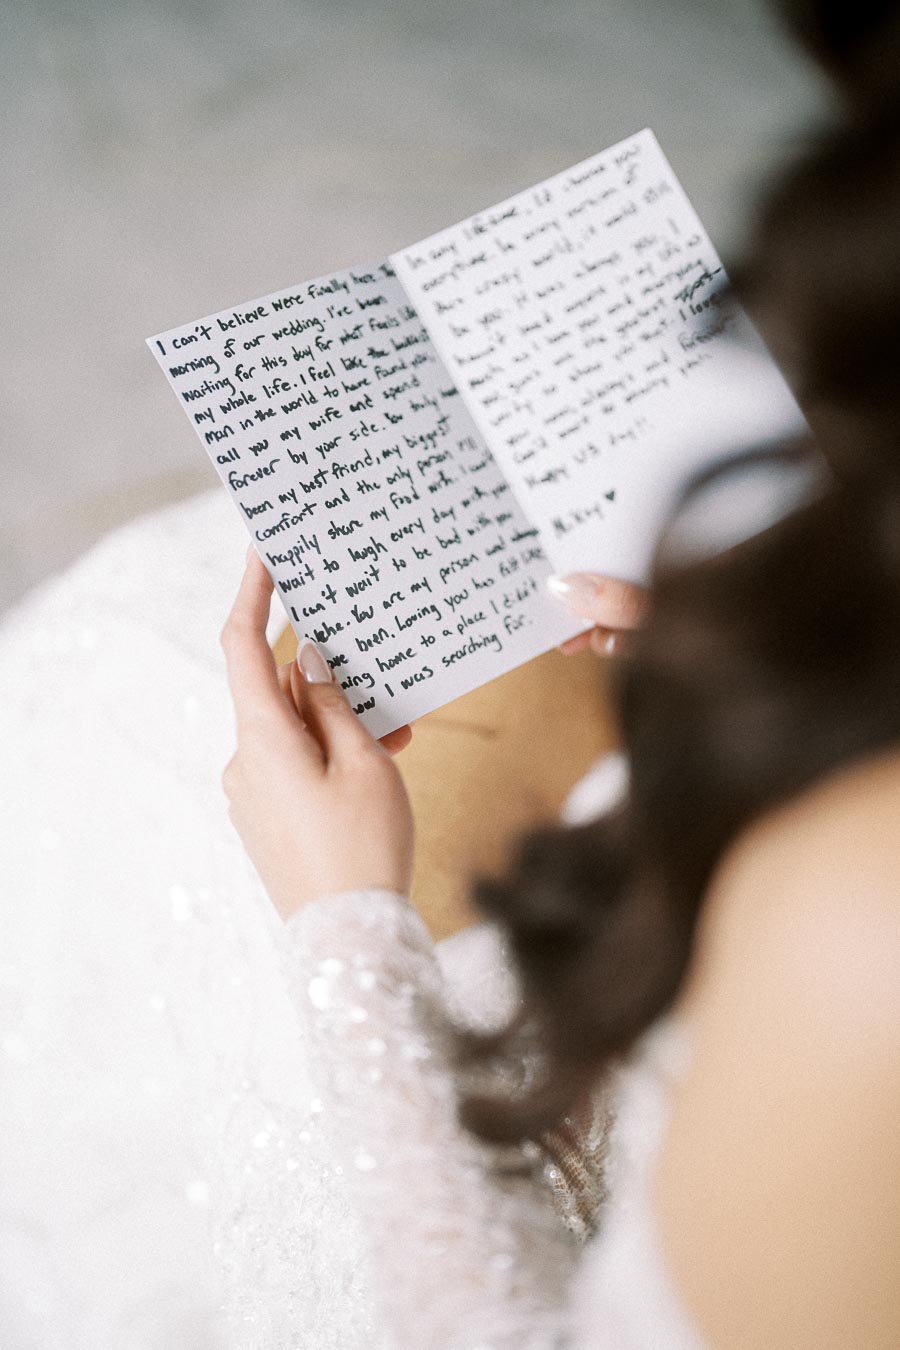 I can't believe were finally here. The
morning of our wedding. I've been
waiting for this day for what feels like
my whole life. I feel like the luckiest
man in the world to have found you,
call you my wife and spend
forever by your side. You truly
been my best friend, my biggest
comfort and the only person I'll
happily share my food with. I can't
wait to laugh every day with you
I can't wait to be bad with you
You are my person and always
been. Loving you has felt like
home to a place I didn't
I was searching for.
In any lifetime. I'd choose you
everytime. In every version of
this crazy world, it would still
be you. It was always you. I
haven't been in my life as
much as I love you and marrying
the greatest
to show you that. I love
you now, always and forever
Can't wait to marry you.
Happy US day!!
Mikey ♥